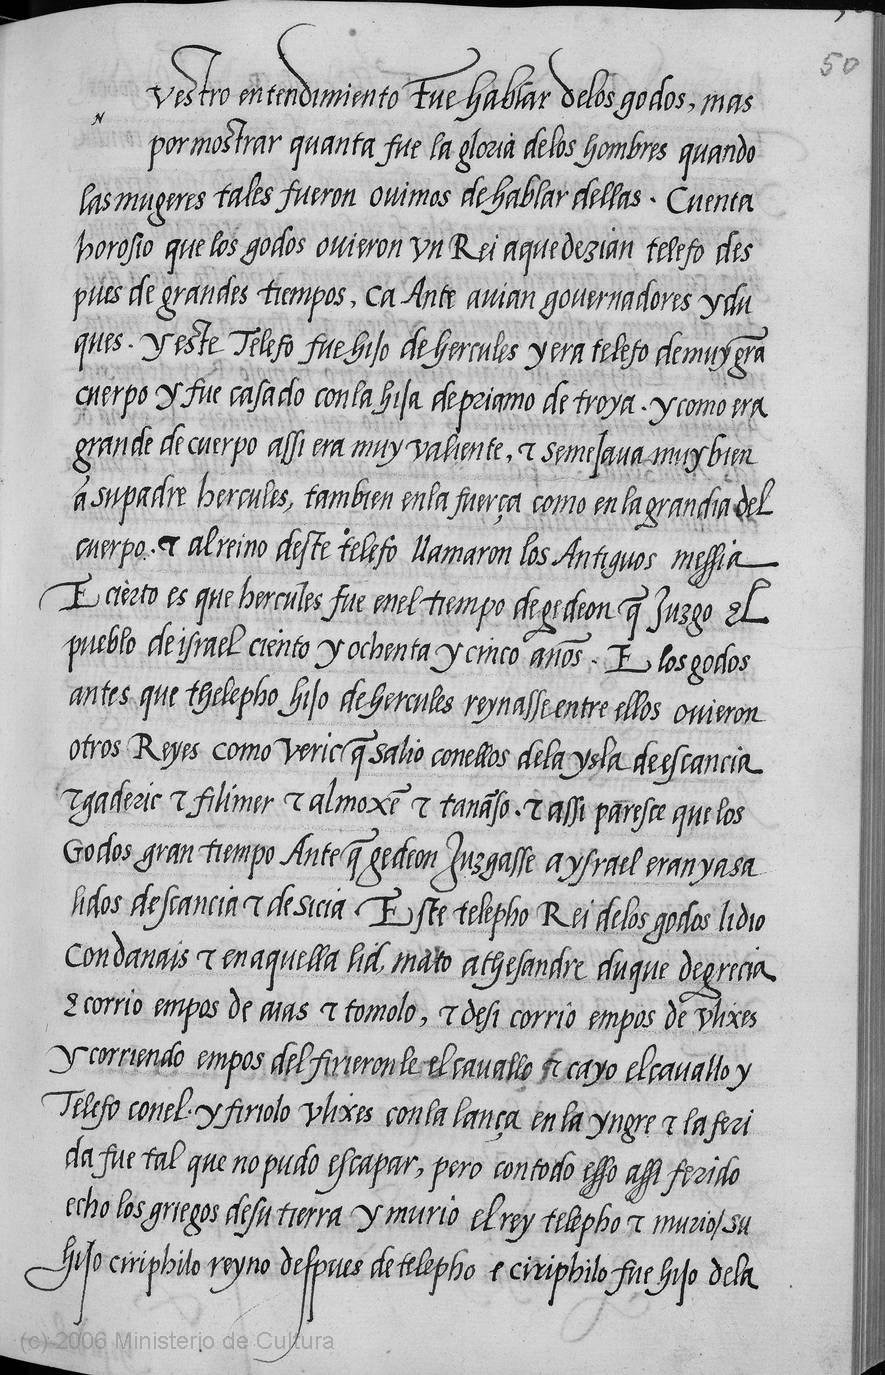 50
vestro entendimiento Fue hablar delos godos, mas
por mostrar quanta fue la gloria delos hombres quando
las mugeres tales fueron ovimos de hablar dellas. Cuenta
horosio que los godos ovieron vn Rei aque dezian telefo des
pues de grandes tiempos, Ca Ante avian governadores y du
ques. Y este Telefo fue hijo de hercules y era telefo de muy grã
cuerpo y fue casado con la hija de priamo de troya. y como era
grande de cuerpo assi era muy valiente, τ semejava muy bien
a su padre hercules, tambien en la fuerça como en la grandia del
cuerpo. τ al reino deste telefo llamaron los Antiguos messia
E cierto es que hercules fue en el tiempo de gedeon q̃ Juzgo el
pueblo de israel ciento y ochenta y cinco años. E los godos
antes que thelepho hijo de hercules reynasse entre ellos ovieron
otros Reyes como Veric q̃ salio con ellos de la ysla de escancia
τ gaderic τ filimer τ almoxẽ τ tanãso. τ assi paresce que los
Godos gran tiempo Ante q̃ gedeon Juzgasse a ysrael eran ya sa
lidos de scancia τ de sicia. Este telepho Rei delos godos lidio
Con danais τ en aquella lid, mato a thesandre duque de grecia
τ corrio empos de aias τ tomolo, τ desi corrio empos de vlixes
Y corriendo empos del firieronle el cavallo τ cayo el cavallo y
Telefo con el. y firiolo vlixes con la lança en la yngre τ la feri
da fue tal que no pudo escapar, pero con todo esso assi ferido
echo los griegos de su tierra Y murio el rey telepho τ murio/su
hijo ciriphilo reyno despues de telepho e ciriphilo fue hijo dela
(c) 2006 Ministerio de Cultura